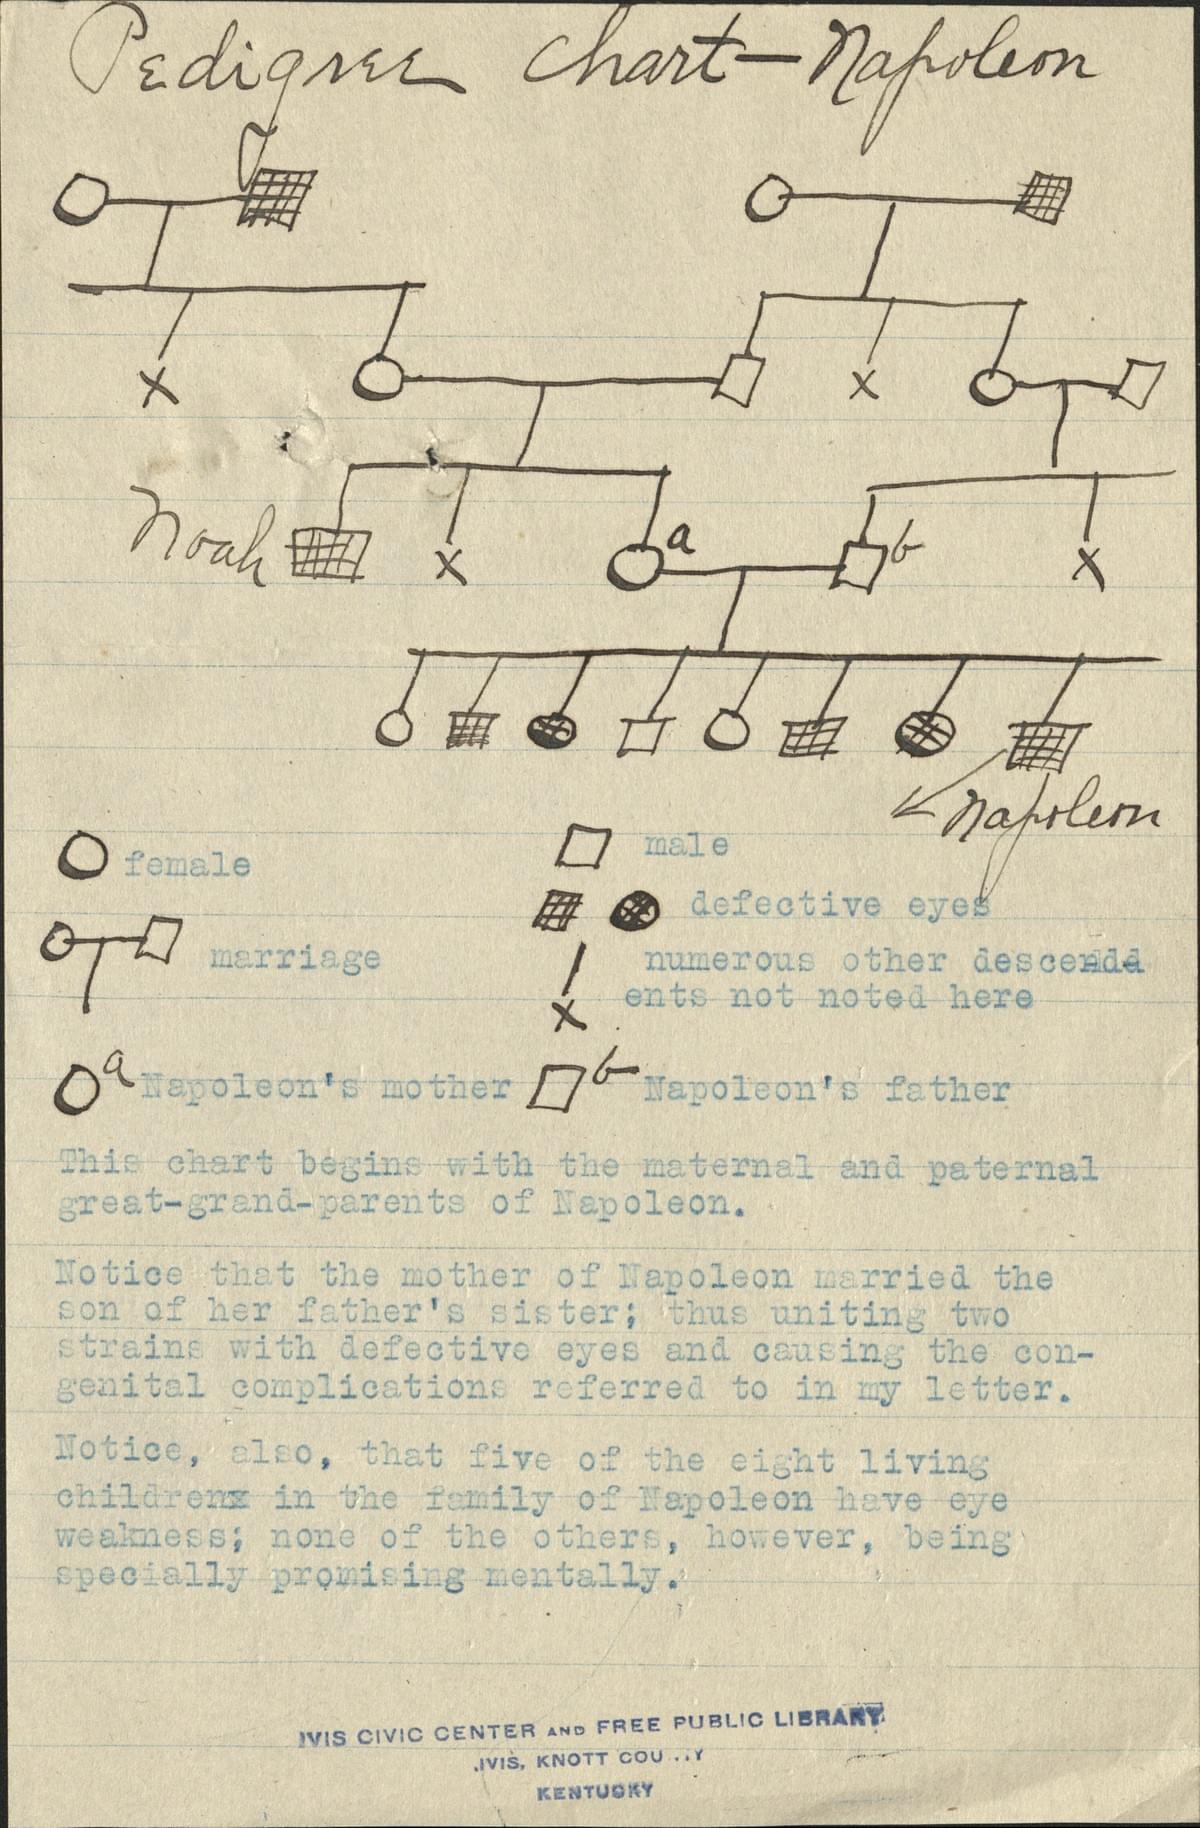 Pedigree Chart — Napoleon
x
x
Noah
x
a
b
x
Napoleon
female
male
defective eyes
marriage
numerous other descendd
ents not noted here
x
a Napoleon's mother
b Napoleon's father
This chart begins with the maternal and paternal
great-grand-parents of Napoleon.
Notice that the mother of Napoleon married the
son of her father's sister; thus uniting two
strains with defective eyes and causing the con-
genital complications referred to in my letter.
Notice, also, that five of the eight living
childrenx in the family of Napoleon have eye
weakness; none of the others, however, being
specially promising mentally.
IVIS CIVIC CENTER AND FREE PUBLIC LIBRARY
IVIS, KNOTT
KENTUCKY